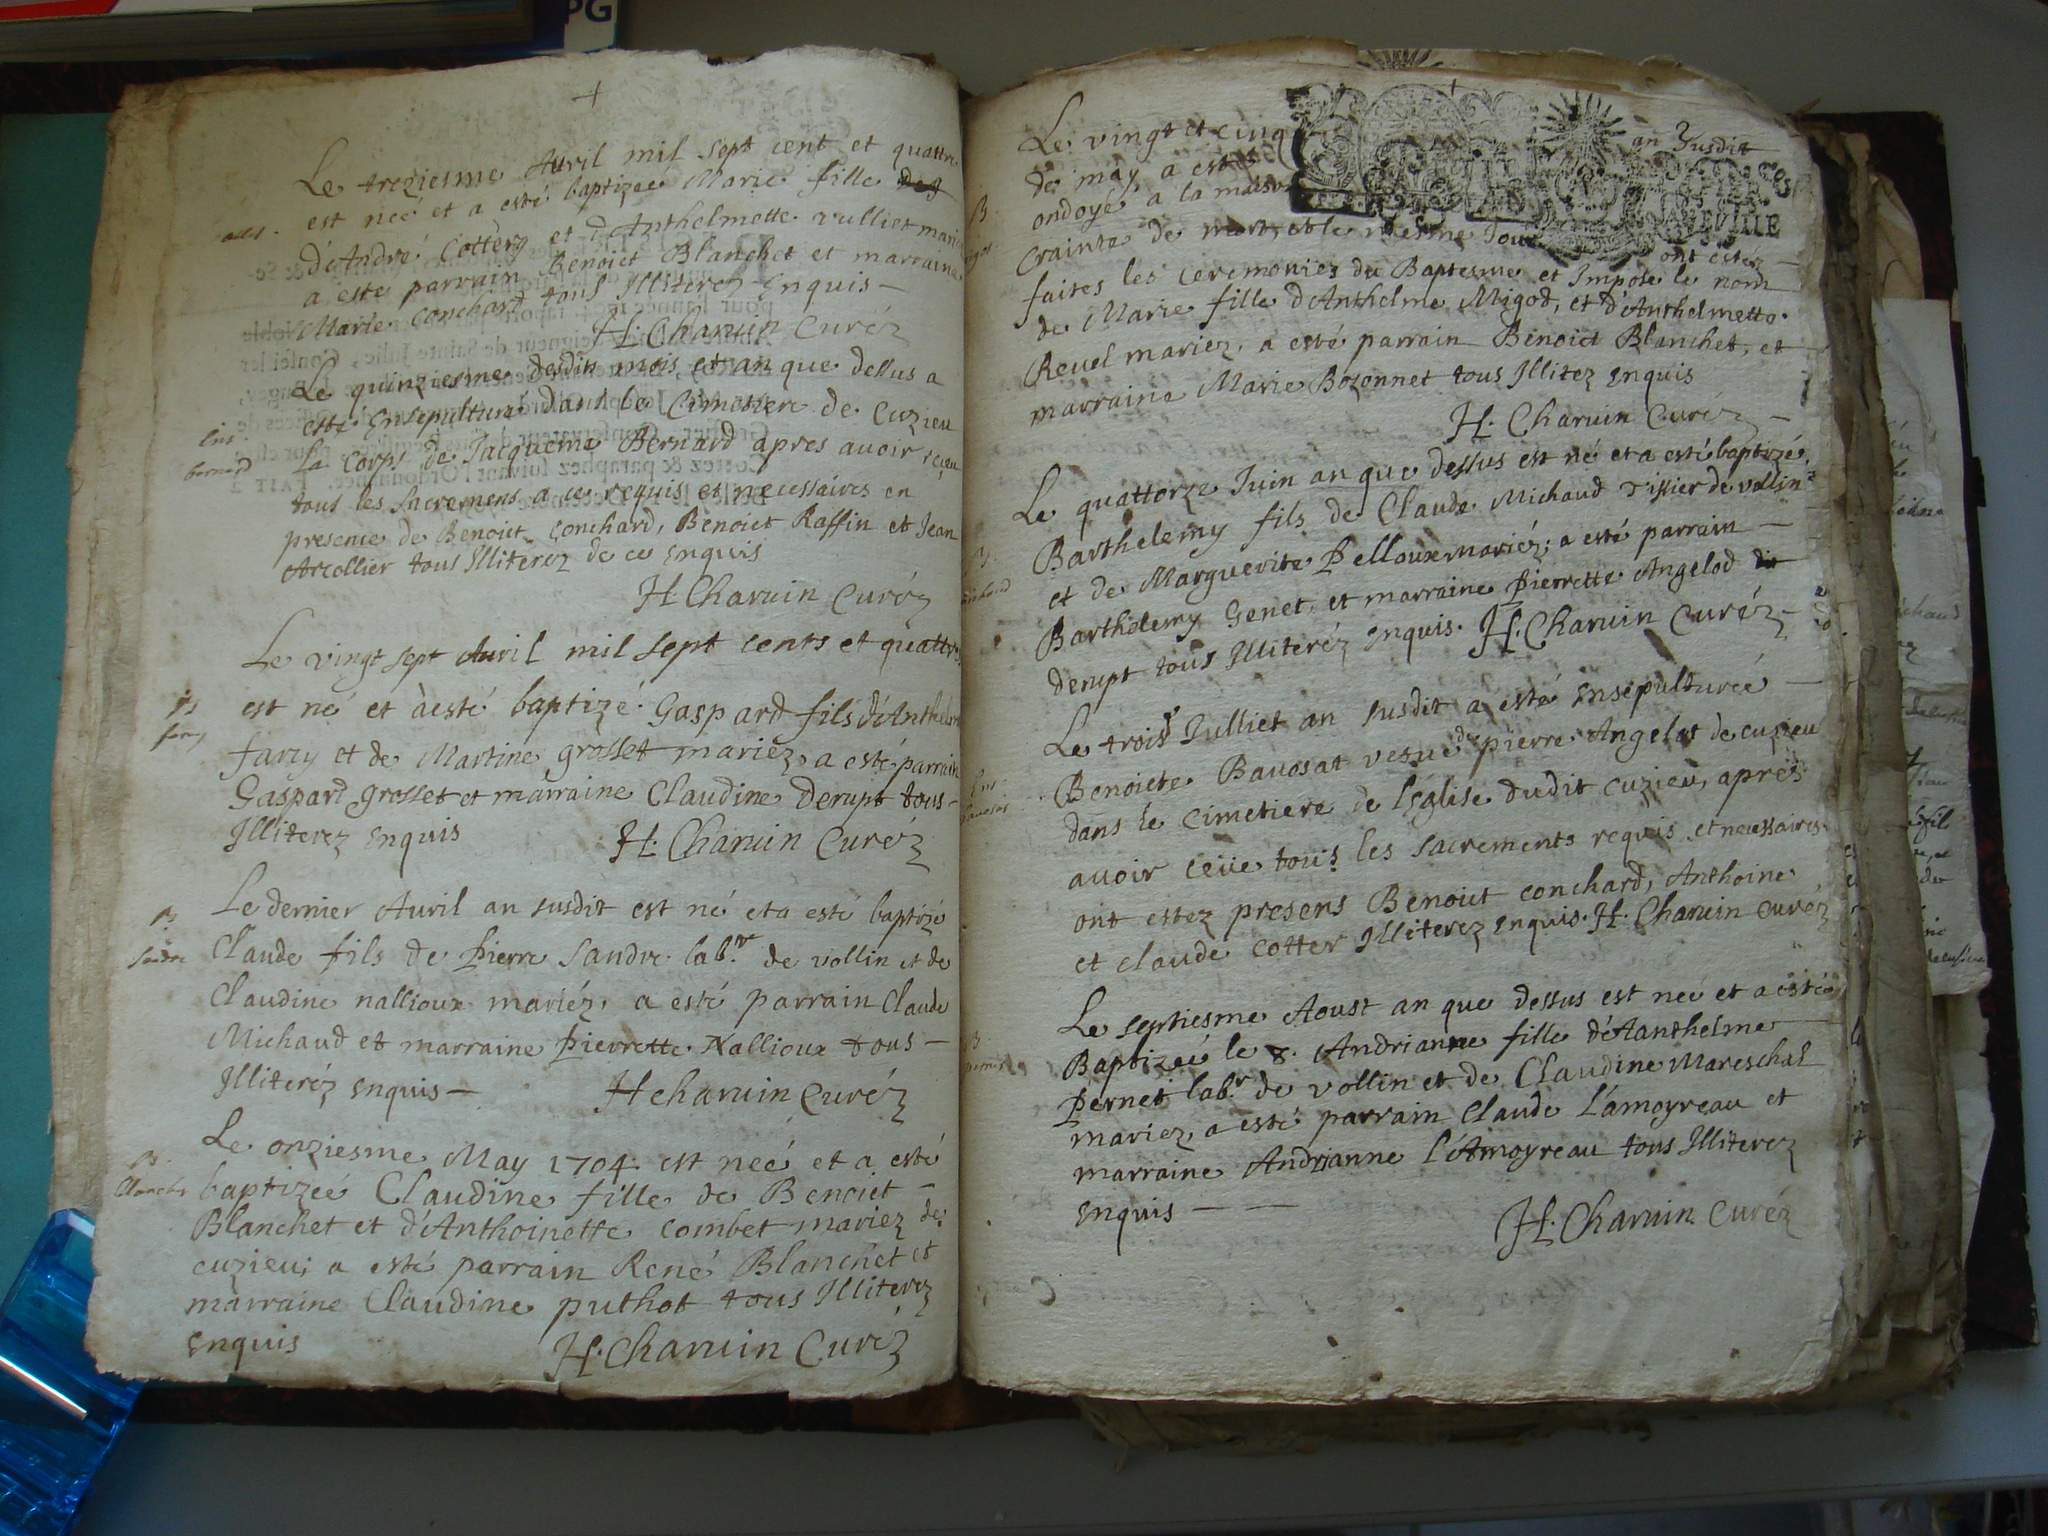 PG
Le treziesme Auril mil sept cent et quattre
est neé et a esté baptizeé Marie fille
d'André Cottery et d'Anthelmette vulliet mariez
a esté parrain Benoict Blanchet et marraine
Marie Conchard tous Illiterez Enquis
H. Charuin Curéz
Le quinziesme desdits mois et an que dessus a
esté Ensepulturé dans le Cimetiere de Cuzieu
Ens.
bernard
La Corps de Jacqueme Bernard apres auoir receu
tous les sacremens a ce requis et necessaires en
presence de Benoict Conchard, Benoict Raffin et Jean
Arcollier tous Illiterez de ce Enquis
H. Charuin Curéz
Le vingt sept Auril mil sept cents et quattre
est né et à esté baptizé Gaspard fils d'Anthelme
farcy et de Martine grosset mariez, a esté parrain
Gaspard grosset et marraine Claudine Derupt tous
Illiterez Enquis
H. Charuin Curéz
Le dernier Auril an susdit est né et a esté baptizé
B
Sandre
Claude fils de Pierre Sandre lab.r de vollin et de
Claudine nallioux mariéz, a esté parrain Claude
Michaud et marraine Pierrette Nallioux tous
Illiteréz Enquis
H charuin Curéz
Le onziesme May 1704. est neé et a esté
B.
Blanchet
baptizeé Claudine fille de Benoict
Blanchet et d'Anthoinette Combet mariez de
cuzieu; a esté parrain René Blanchet et
marraine Claudine puthot tous Illiterez
Enquis
H. Charuin Curéz
Le vingt et cinq
an susdit
de may a esté
B.
ondoyé a la maison
crainte de mort, et le mesme Jour
ont estéz
faites les ceremonies du Baptesme et Imposé le nom
de Marie fille d'Anthelme Migod, et d'Anthelmette
Reuel mariez, a esté parrain Benoict Blanchet, et
marraine Marie Bozonnet tous Illitez Enquis
H. Charuin Curéz
Le quattorze Juin an que dessus est né et a esté baptizé
Barthelemy fils de Claude Michaud Tissier de vollin
et de Marguerite Pelloux mariéz; a esté parrain
Barthelemy Genet, et marraine Pierrette Angelod
derupt tous Illiteréz Enquis. H. Charuin Curéz
Le trois Julliet an susdit a esté Ensepultureé
Benoiete Bauosat vesue de pierre Angelot de cuzieu
dans le Cimetiere de l'Eglise dudit cuzieu, apres
auoir ceüe tous les sacrements requis et necessaires
ont estez presens Benoict conchard, Anthoine
et claude Cotter Illiterez Enquis. H. Charuin Curéz
Le septiesme Aoust an que dessus est neé et a esté
Baptizeé le 8. Andrianne fille d'Aanthelme
B.
Pernet
Pernet lab.r de vollin et de Claudine Mareschal
mariez, a esté parrain Claude L'amoyreau et
marraine Andrianne L'Amoyreau tous Illiterez
Enquis
H. Charuin Curéz